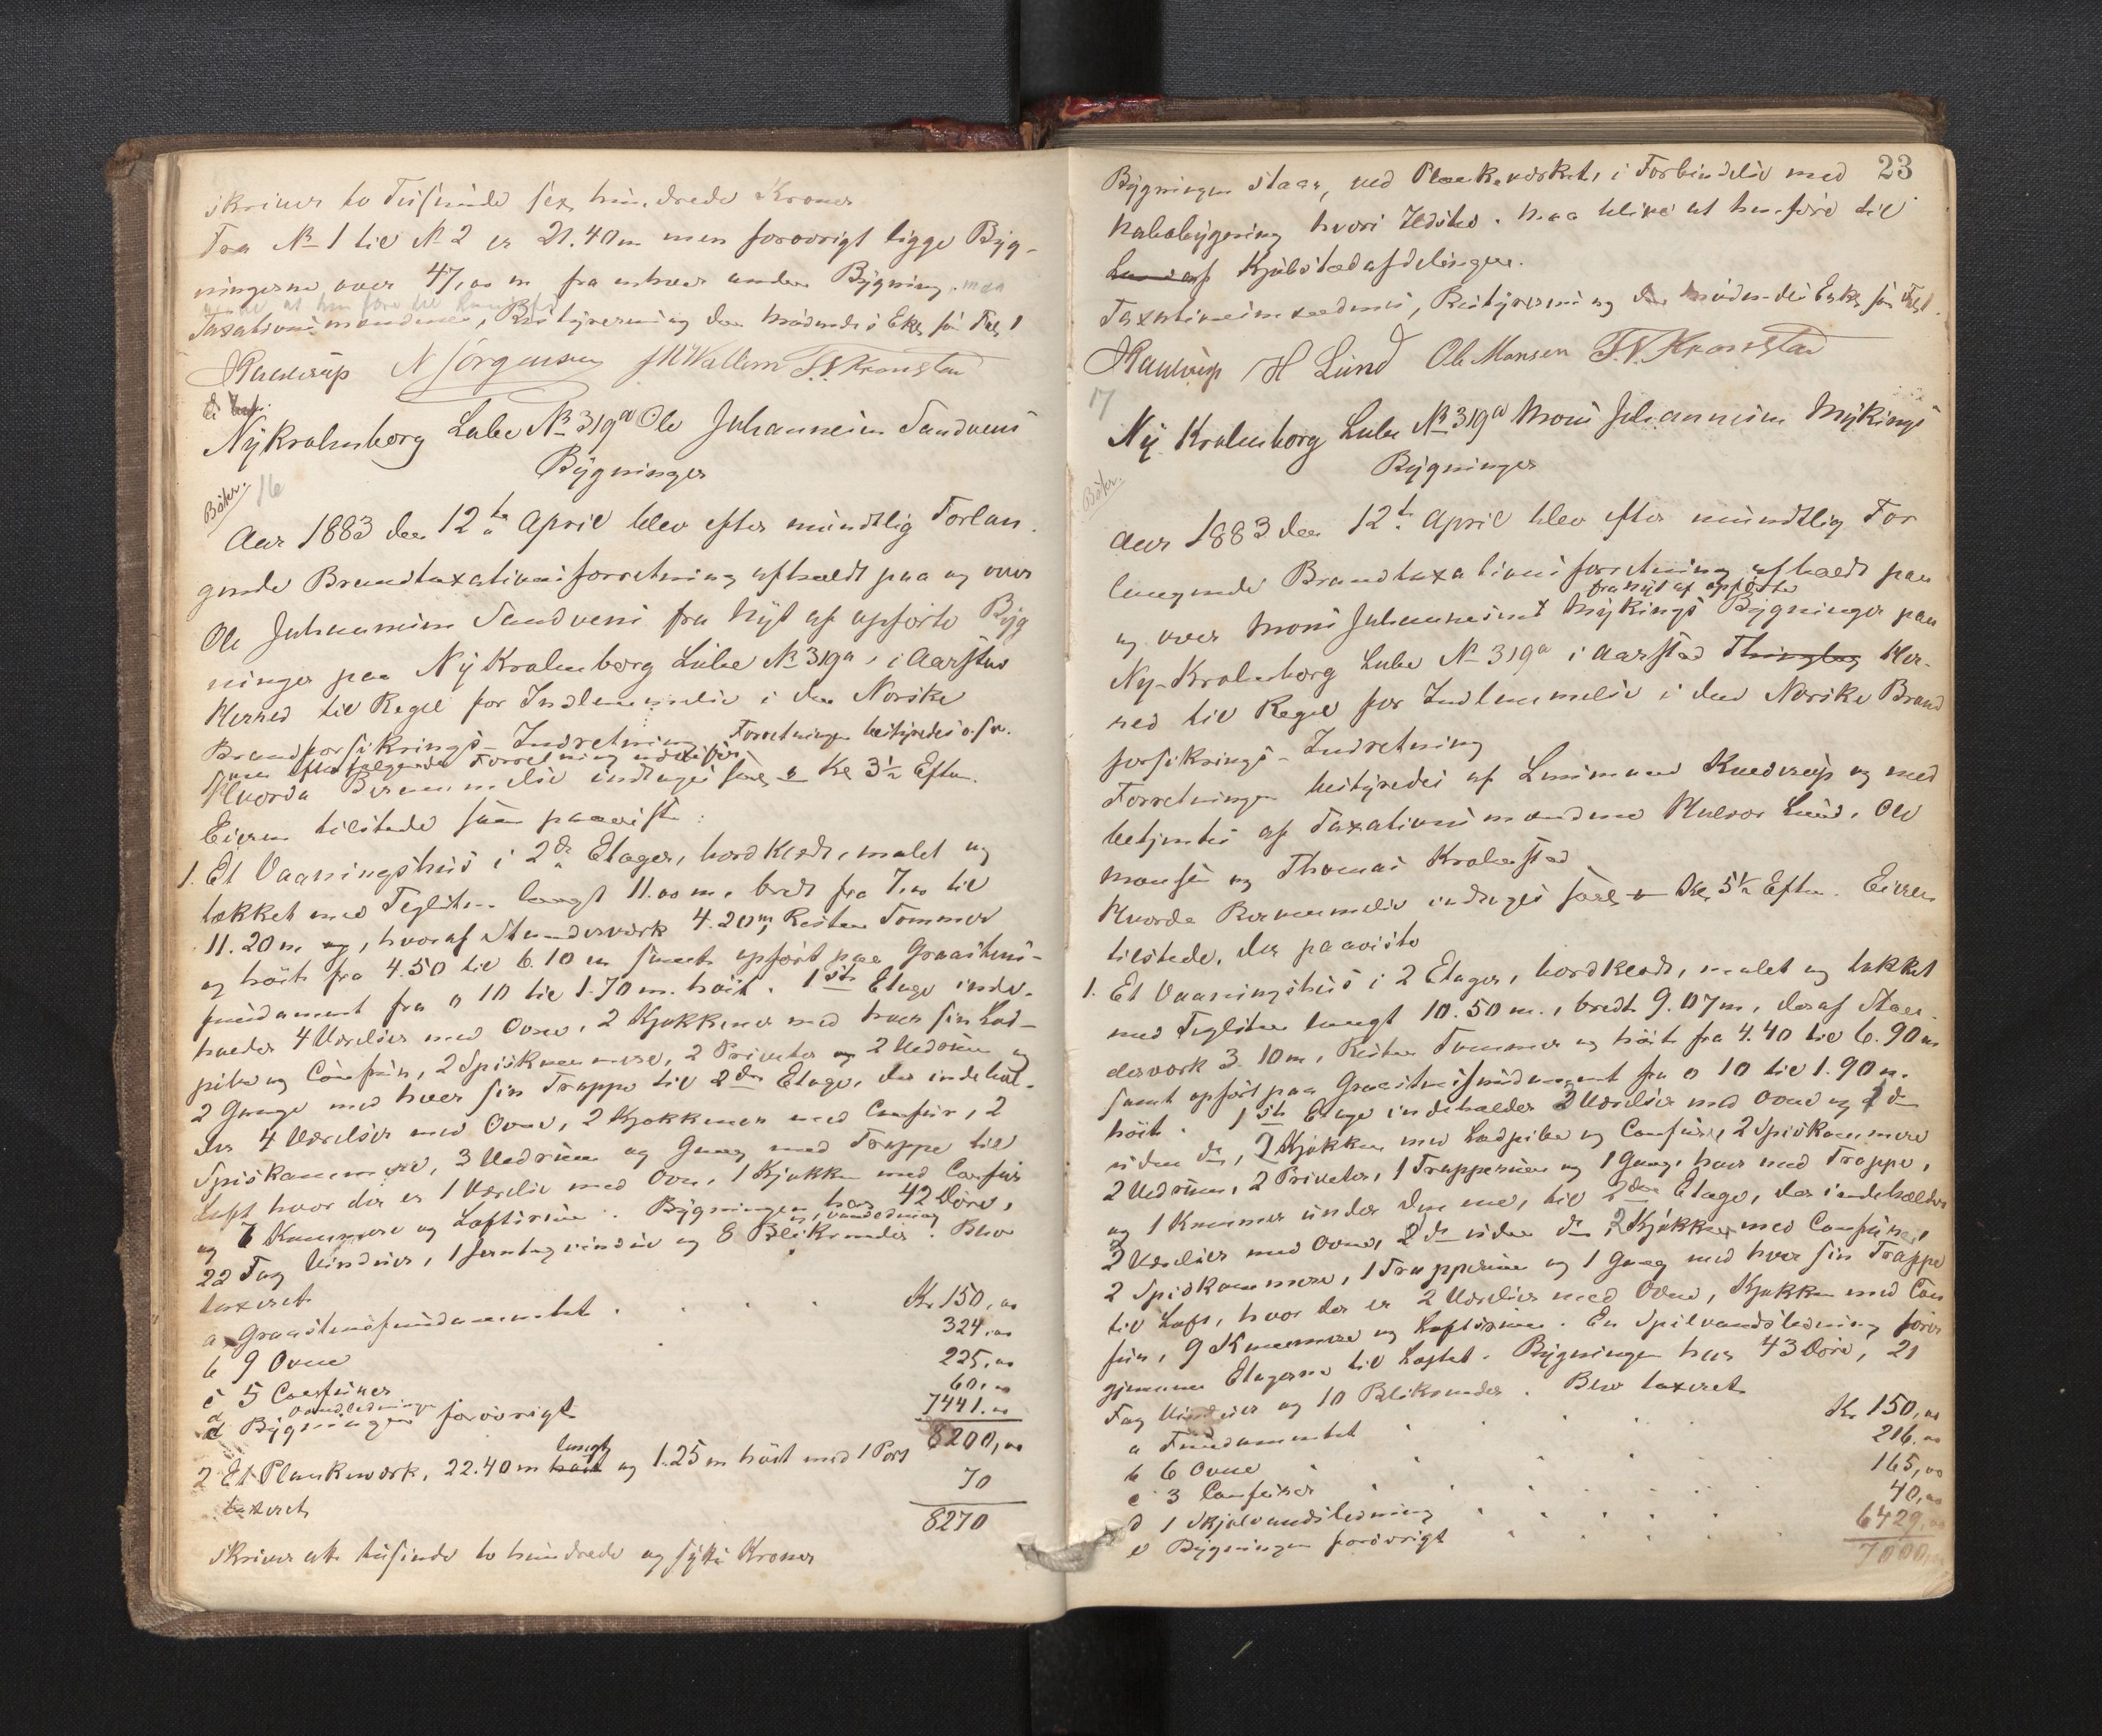 skriver to Tusinde sex hundrede Kroner
Fra No 1 til No 2 er 21.40 m men forøvrigt ligge Byg-
ningerne over 47,00 m fra enhver anden Bygning. maa
at henføre til
Taxationsmændene, Bestyreren og den mødende i Eks for Tax 1
Raadrup N Jörgensen T.V. Kronstad
Ny Krohnborg Løbe No 319a Ole Johannesen Sandvens
Bygninger
Bökr. 16
Aar 1883 den 12te April blev efter mundtlig Forlan-
gende Brandtaxationsforretning afholdt paa og over
Ole Johannesen Sandvens fra Nyt af opførte Byg
ninger paa Ny Krohnborg Løbe No 319a i Aarstad
Herred til Regel for Indlemmelse i den Norske
Brandforsikrings-Indretning Forretningen bestyredes o.s.v.
som efterfølgende Forretning udviser
Hvorda Benævnelse indtages saal. Kl 3½ Efterm.
Eieren tilstede som paaviste:
1. Et Vaaningshus i 2de Etager, bordklædt, malet og
tækket med Teglsten langt 11.00 m, bredt fra 7.00 til
11.20 m, hvoraf Standerværk 4.20 m, Resten Tømmer
og høit fra 4.50 til 6.10 m samt opført paa Graastens-
fundament fra 0 10 til 1.70 m. høit. 1ste Etage inde-
holder 4 Værelser med Ovne, 2 Kjøkkener med hver sin Lod-
pibe og Comfur, 2 Spiskammere, 2 Priveter og 2 Vedrum og
2 Gange med hver sin Trappe til 2den Etage, der indehol-
der 4 Værelser med Ovne, 2 Kjøkkener med Comfur, 2
Spiskammere, 3 Vedrum og Gang med Trappe til
Loft hvor der er 1 Værelse med Ovn, 1 Kjøkken med Comfur
og 7 Kammere og Loftsrum. Bygningen har 42 Døre,
vandledning
22 Fag Vinduer, 1 Jerntagvindue og 8 Blikrender. Blev
taxeret
a Graastensfundamentet . . . Kr 150,00
b 9 Ovne . 324,00
c 5 Comfurer 225,00
d Vandledningen 60,00
e Bygningen forøvrigt 7441.00
8200,00
2 Et Plankeværk, 22.40 m langt høit og 1.25 m høit med 1 Port
taxeret 70
8270
skriver otte tusinde to hundrede og sytti Kroner
23
Bygningen staar, ved Plankeværket, i Forbindelse med
Nabobygning hvori Ildsted. Maa blive at henføre til
Kjøbstadafdelingen.
Taxationsmændene, Bestyreren og den mødende i Eks for Tax 1.
Raadrup H Lund Ole Monsen T.V. Kronstad
17
Ny Krohnborg Løbe No 319a Mons Johannesen Mykings
Bygninger
Bökr.
Aar 1883 den 12te April blev efter mundtlig For
langende Brandtaxationsforretning afholdt paa
fra nyt af opførte
og over Mons Johannesens Mykings Bygninger paa
Ny-Krohnborg Løbe No 319a i Aarstad Thinglag Her-
red til Regel for Indlemmelse i den Norske Brand
forsikrings-Indretning
Forretningen bestyredes af Lensmand Raadrup og med
betjentes af Taxationsmændene Halvor Lund, Ole
Monsen og Thomas Krohnstad
Hvorda Benævnelse indtages saal. Kl. 5½ Efterm. Eieren
tilstede, der paaviste
1. Et Vaaningshus i 2 Etager, bordklædt, malet og tækket
med Teglsten langt 10.50 m., bredt 9.07 m, deraf Stan-
derværk 3.10 m, Resten Tømmer og høit fra 4.40 til 6.90 m
samt opført paa Graastensfundament fra 0 10 til 1.90 m.
høit. 1ste Etage indeholder 2 Værelser med Ovne og 2 do
uden do, 2 Kjøkken med Lodpibe og Comfurer, 2 Spiskammere
2 Vedrum, 2 Priveter, 1 Trapperum og 1 Gang, hver med Trappe,
og 1 Kammer under denne, til 2den Etage, der indeholder
2 Værelser med Ovne, 2 do uden do, 2 Kjøkken med Comfurer,
2 Spiskammere, 1 Trapperum og 1 Gang med hver sin Trappe
til Loft, hvor der er 2 Værelser med Ovne, Kjøkken med Com
fur, 9 Kammere og Loftsrum. En Spilvandsledning fører
gjennem Etagerne til Loftet. Bygningen har 43 Døre, 21
Fag Vinduer og 10 Blikrender. Blev taxeret
a Fundamentet . . . Kr 150,00
b 6 Ovne . . . 216.00
c 3 Comfurer . . . 165,00
d 1 Skjølvandsledning . . . 40,00
e Bygningen forøvrigt . . . 6429,00
7000,00